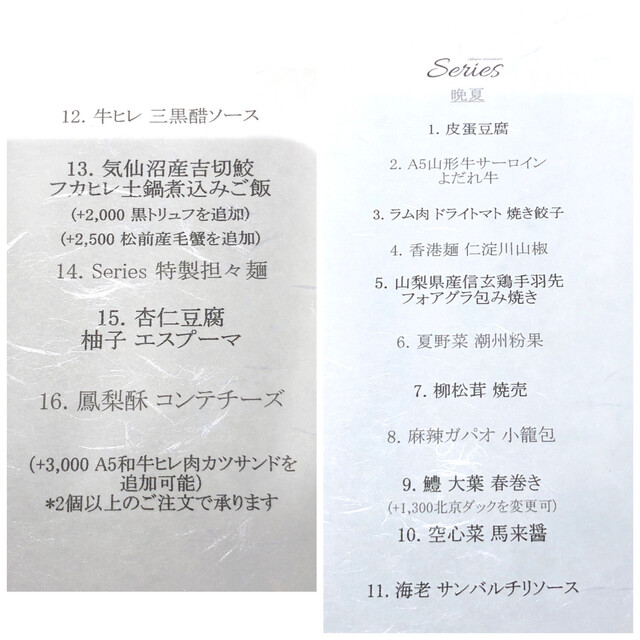 Series
晩夏
1. 皮蛋豆腐
2. A5山形牛サーロイン
よだれ牛
3. ラム肉 ドライトマト 焼き餃子
4. 香港麺 仁淀川山椒
5. 山梨県産信玄鶏手羽先
フォアグラ包み焼き
6. 夏野菜 潮州粉果
7. 柳松茸 焼売
8. 麻辣ガパオ 小籠包
9. 鱧 大葉 春巻き
(+1,300北京ダックを変更可)
10. 空心菜 馬来醤
11. 海老 サンバルチリソース
12. 牛ヒレ 三黒醋ソース
13. 気仙沼産吉切鮫
フカヒレ土鍋煮込みご飯
(+2,000 黒トリュフを追加)
(+2,500 松前産毛蟹を追加)
14. Series 特製担々麺
15. 杏仁豆腐
柚子 エスプーマ
16. 鳳梨酥 コンテチーズ
(+3,000 A5和牛ヒレ肉カツサンドを
追加可能)
*2個以上のご注文で承ります